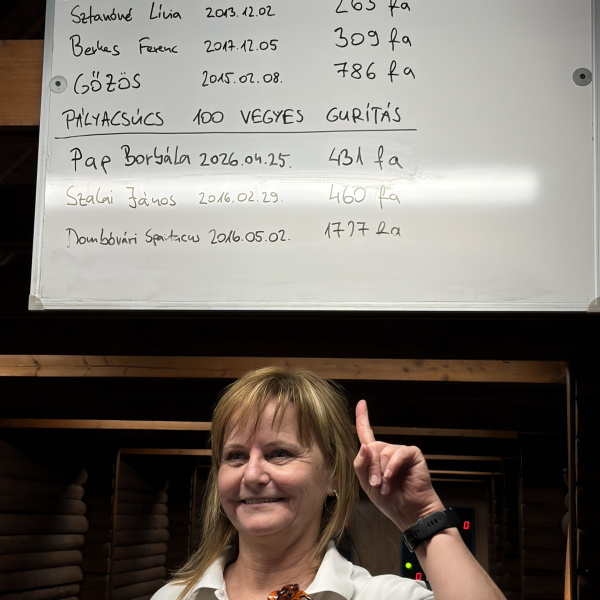 Sztanóné Lívia 2013.12.02 265 fa
Berkes Ferenc 2017.12.05 309 fa
GŐZÖS 2015.02.08. 786 fa
PÁLYACSÚCS 100 VEGYES GURÍTÁS
Pap Borbála 2026.04.25. 431 fa
Szalai János 2016.02.29. 460 fa
Dombóvári Spartacus 2016.05.02. 1777 fa
0
0